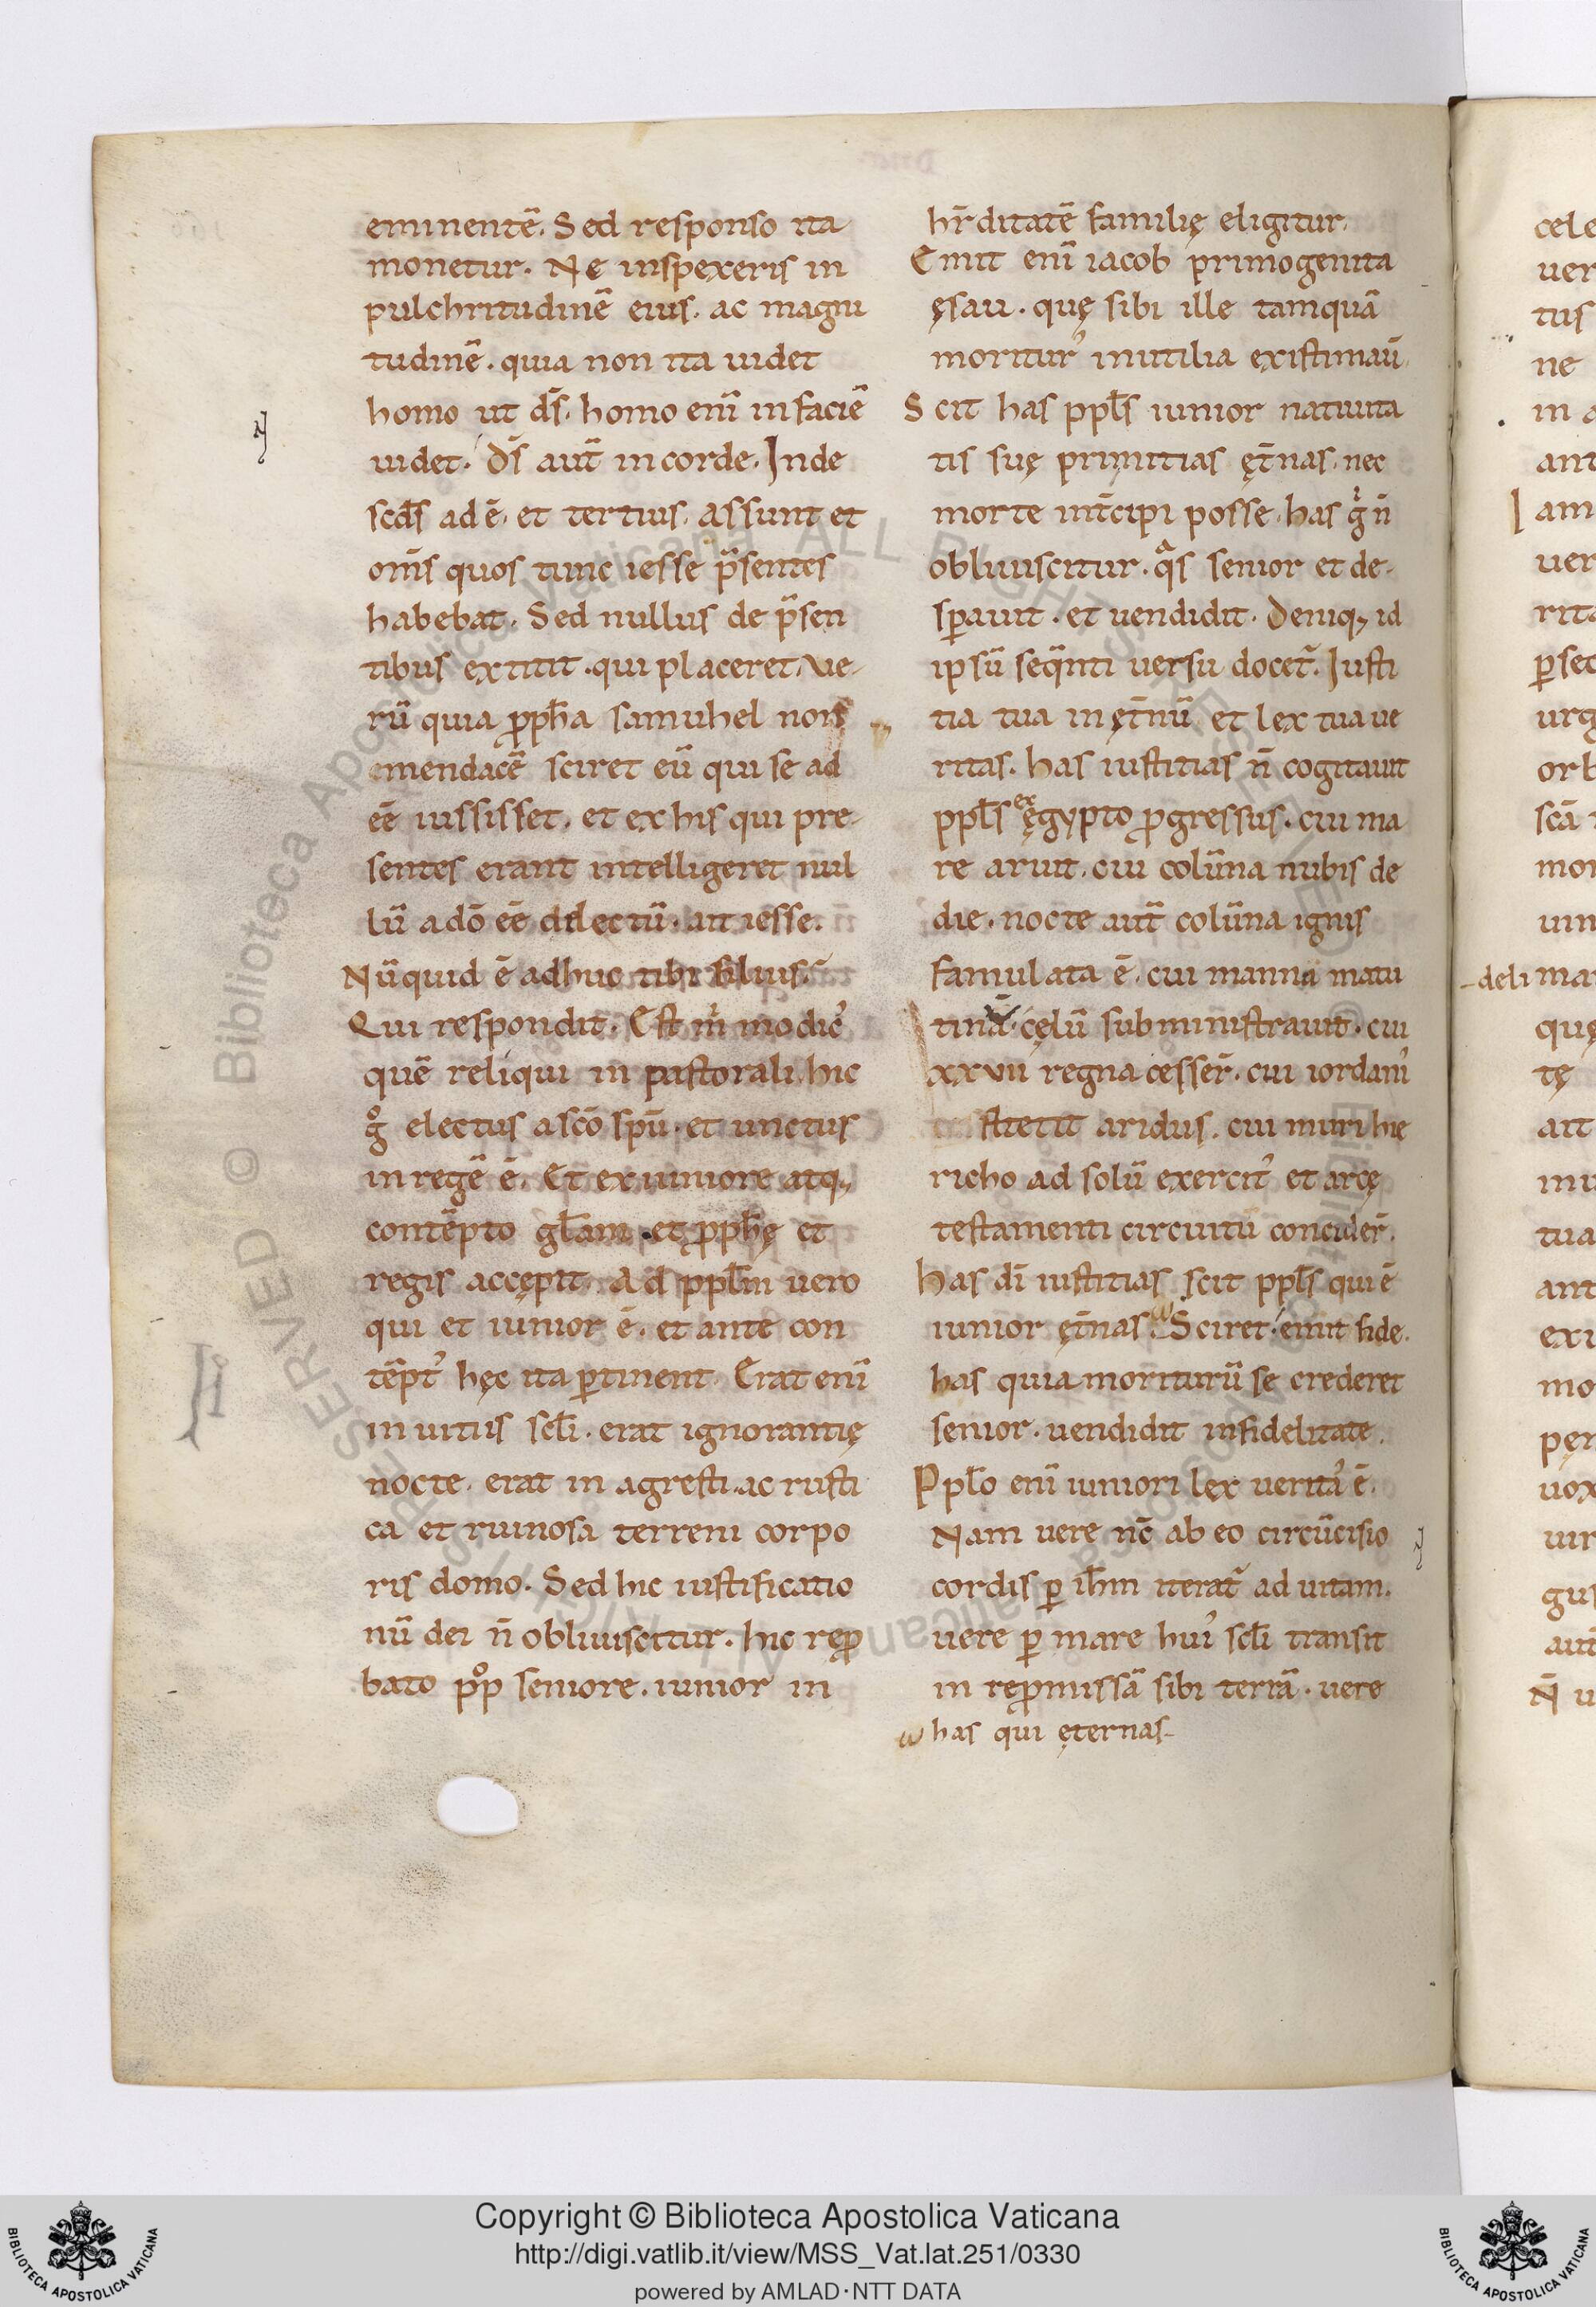 eminentē. Sed responso ita
monetur. Ne inspexeris in
pulchritudinē eius. ac magni
tudinē. quia non ita uidet
homo ut ds̄. homo enī in faciē
uidet. Ds̄ aut̄ in corde. Inde
scds̄ ad ē. et tertius. assunt et
om̄s quos tunc iesse p̄sentes
habebat. Sed nullus de p̄sen
tibus extitit. qui placeret. Ve-
rū quia ꝓph̄a samuhel non
emendacē sciret eū qui se ad
eē iussisset. et ex his qui pre-
sentes erant intelligeret nul
lū a dō eē delectū. ait iesse.
Nūquid ē adhuc tibi filius.
Qui respondit. Est m̄ modic᾽
quē reliqui in pastorali. hic
gͦ electus a scō sp̄u. et unctus
in regē ē. Et ex iuniore atq;
contēpto gl̄am. et ꝓph̄ę et
regis accępit. Ad ppl̄m uero
qui et iunior ē. et ante con
tēpt᾽ hęc ita ꝑtinent. Erat enī
in uitiis scl̄i. erat ignorantię
nocte. erat in agresti. ac rusti
ca et ruinosa terreni corpo
ris domo. Sed hic iustificatio
nū dei n̄ obliuiscitur. hic reꝓ
bato pͦp seniore. iunior in
hr̄ditatē familię eligitur.
Emit enī iacob primogenita
ęsau. quę sibi ille tamquā
moritur᾽ inutilia existimau̅.
Scit has ppl̄s iunior natiuita
tis suę primitias ęt̄nas. nec
morte int̄cipi posse. has gͥ n̄
obliuiscitur. qᵃs senior et de-
sꝑauit. et uendidit. Deniq; id
ipsū seq̄nti uersu docet᷑. Iusti
tia tua in ęt̄nū et lex tua ue
ritas. has iustitias n̄ cogitauit
ppl̄s ex ęgypto ꝓgressus. cui ma
re aruit. cui colūna nubis de
die. nocte aut̄ colūna ignis
famulata ē. cui manna matu
tinā. cęlū subministrauit. cui
xxvii regna cesser̄. cui iordani᾽
stetit aridus. cui muri hie
richo ad solū exercit᾽ et arcę
testamenti circuitū concider̄.
has dī iustitias scit ppl̄s qui ē
iunior ęt̄nas. Sciret. emit fide.
has quia moriturū se crederet
senior. uendidit infidelitate.
Ppl̄o enī iuniori lex uerita᾽ ē.
Nam uere nc̄ ab eo circūcisio
cordis ꝑ ih̄m iterat᷑ ad uitam.
uere ꝑ mare hui᾽ scl̄i transit
in reꝓmissā sibi terrā. uere
has qui ęternas-
cele
uer
tus
ne
ant
am
uer
rita
ꝑsec
urg
scā
mor
uin
-deli ma
quę
tę
ait
tua
ant
exi
mo
uox
uir
gus
aut
Copyright © Biblioteca Apostolica Vaticana
http://digi.vatlib.it/view/MSS_Vat.lat.251/0330
powered by AMLAD·NTT DATA
BIBLIOTECA APOSTOLICA VATICANA
BIBLIOTECA APOSTOLICA VATICANA